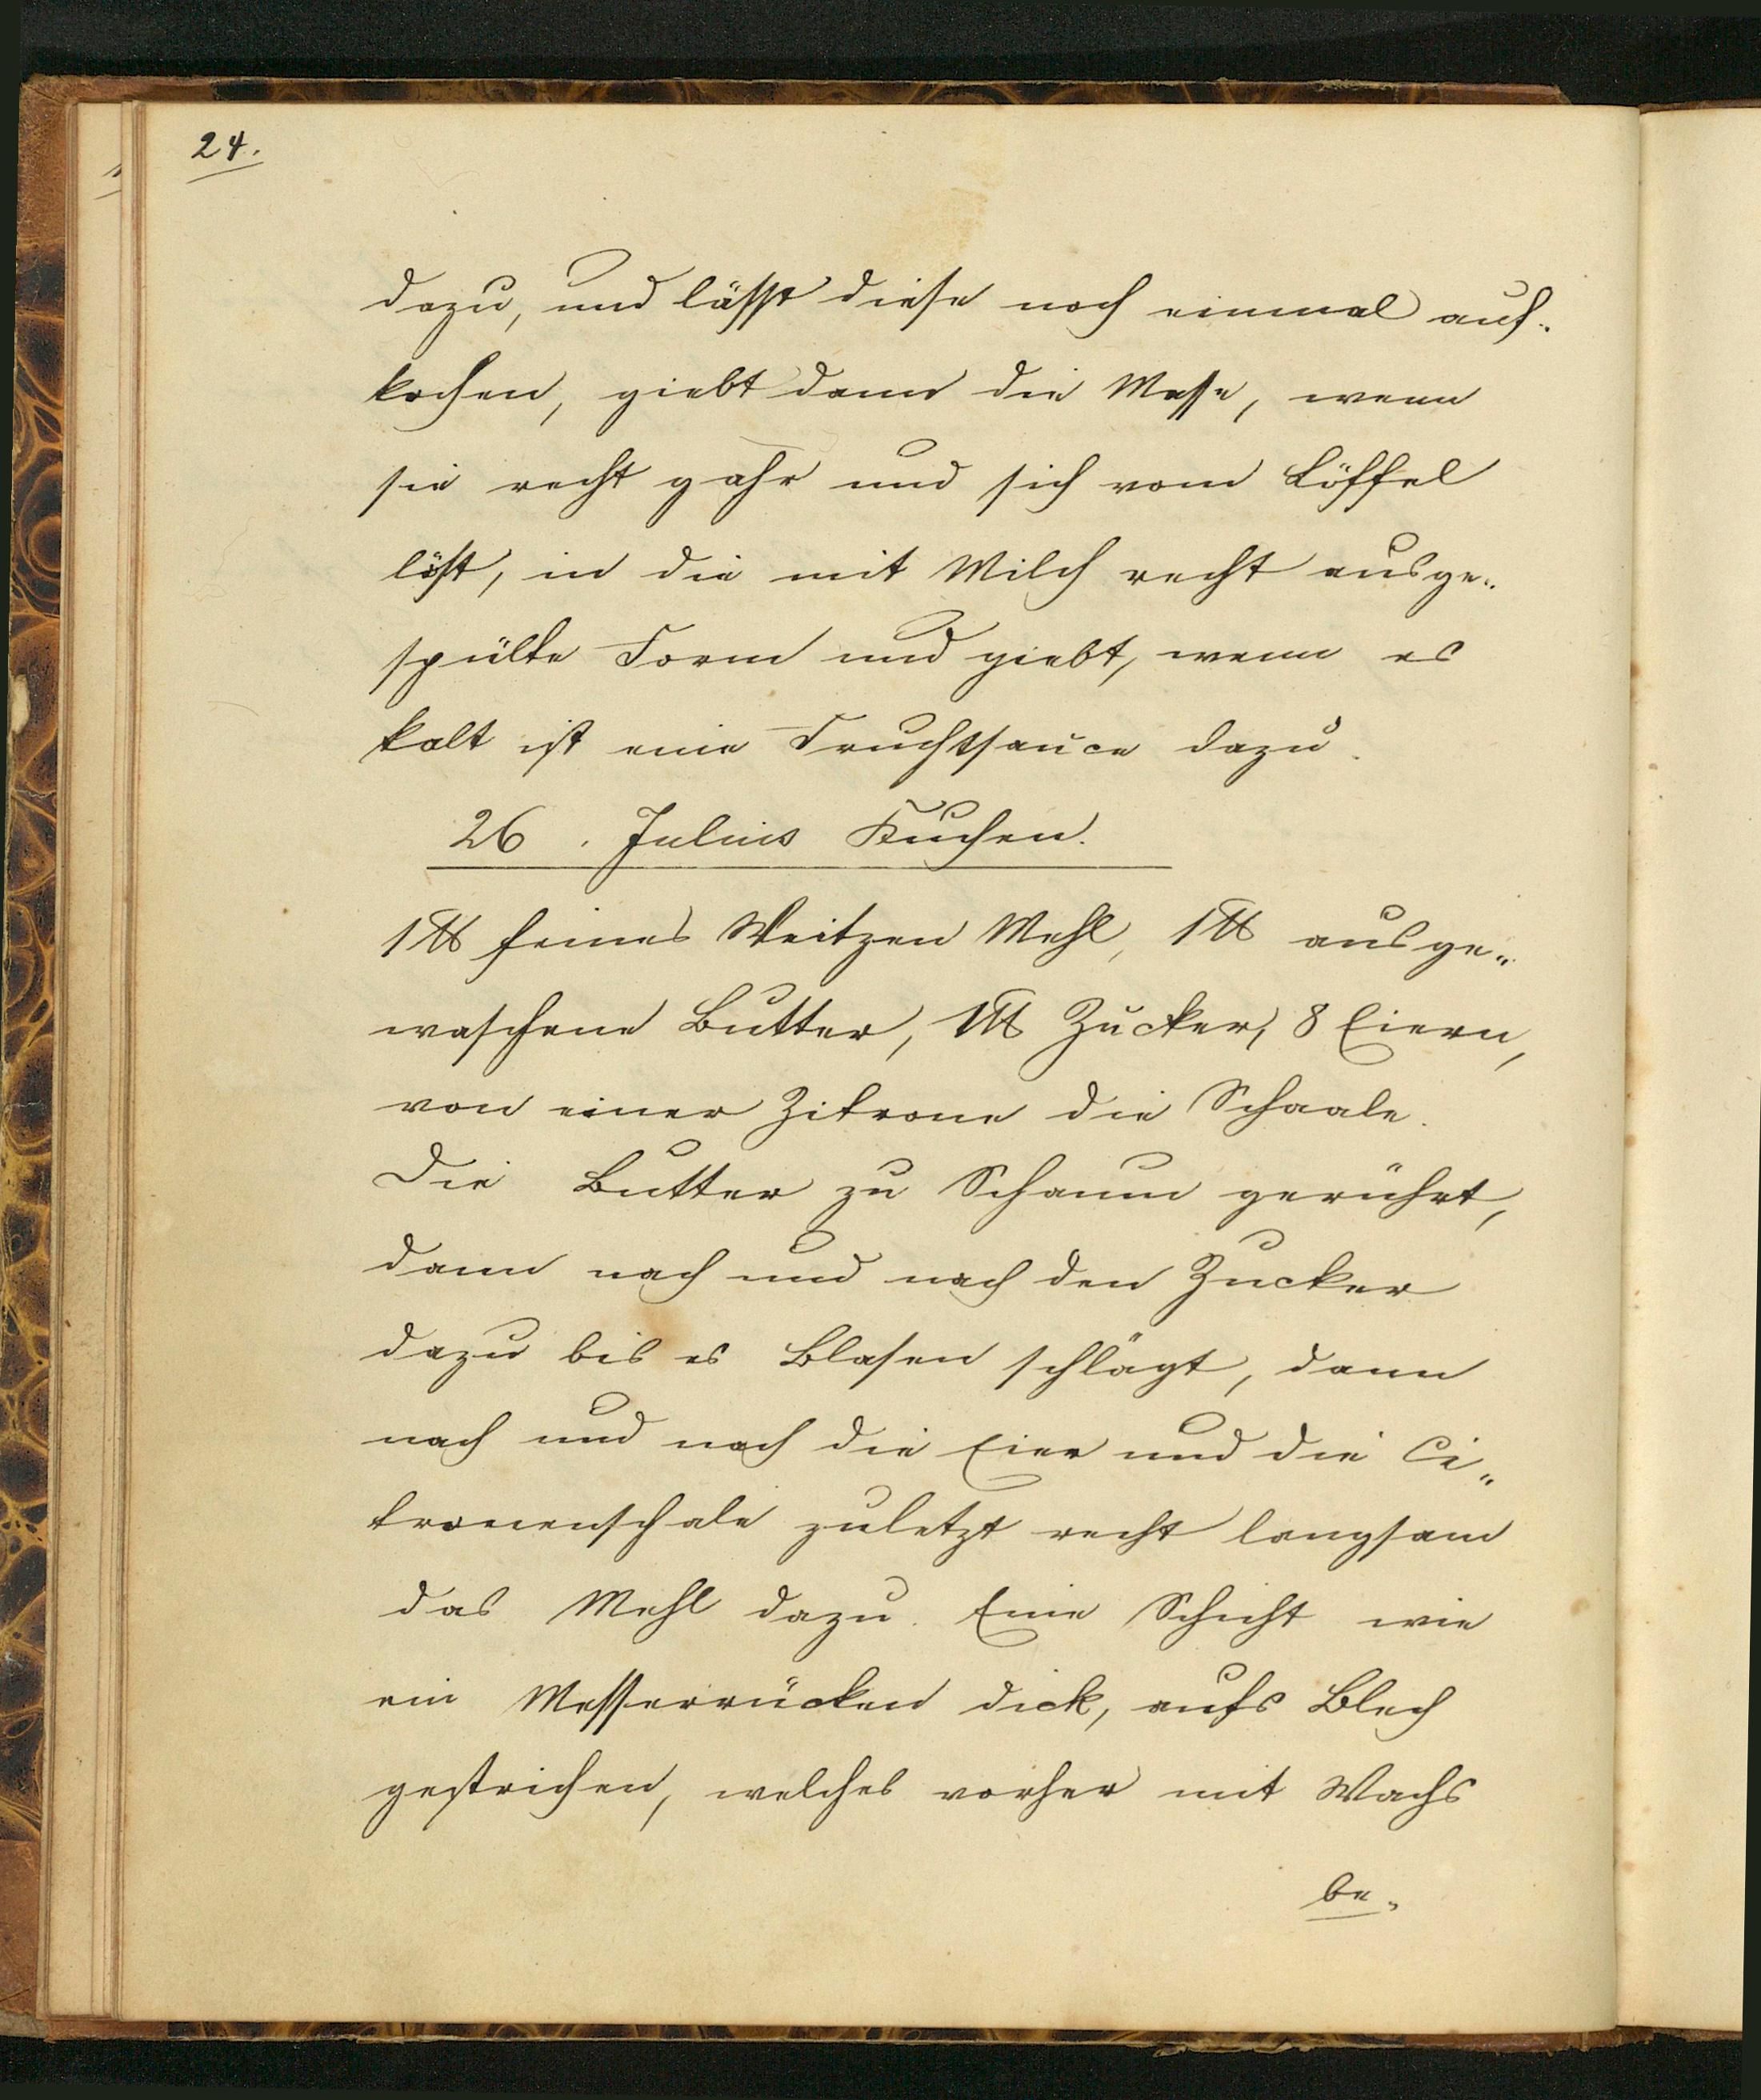 24.
dazu, und lässt diese noch einmal auf-
kochen, giebt dann die Masse, wenn
sie recht gahr und sich vom Löffel
löst, in die mit Milch recht ausge-
spülte Form und giebt, wenn es
kalt ist eine Fruchtsauce dazu.
26. Julius Kuchen.
1 ℔ feines Weitzen Mehl, 1 ℔ ausge-
waschene Butter, 1 ℔ Zucker, 8 Eiern,
von einer Zitrone die Schaale.
Die Butter zu Schaum gerührt,
dann nach und nach den Zucker
dazu bis es Blasen schlägt, dann
nach und nach die Eier und die Ci-
tronenschale zuletzt recht langsam
das Mehl dazu. Eine Schicht wie
ein Messerrücken dick, aufs Blech
gestrichen, welches vorher mit Wachs
be-